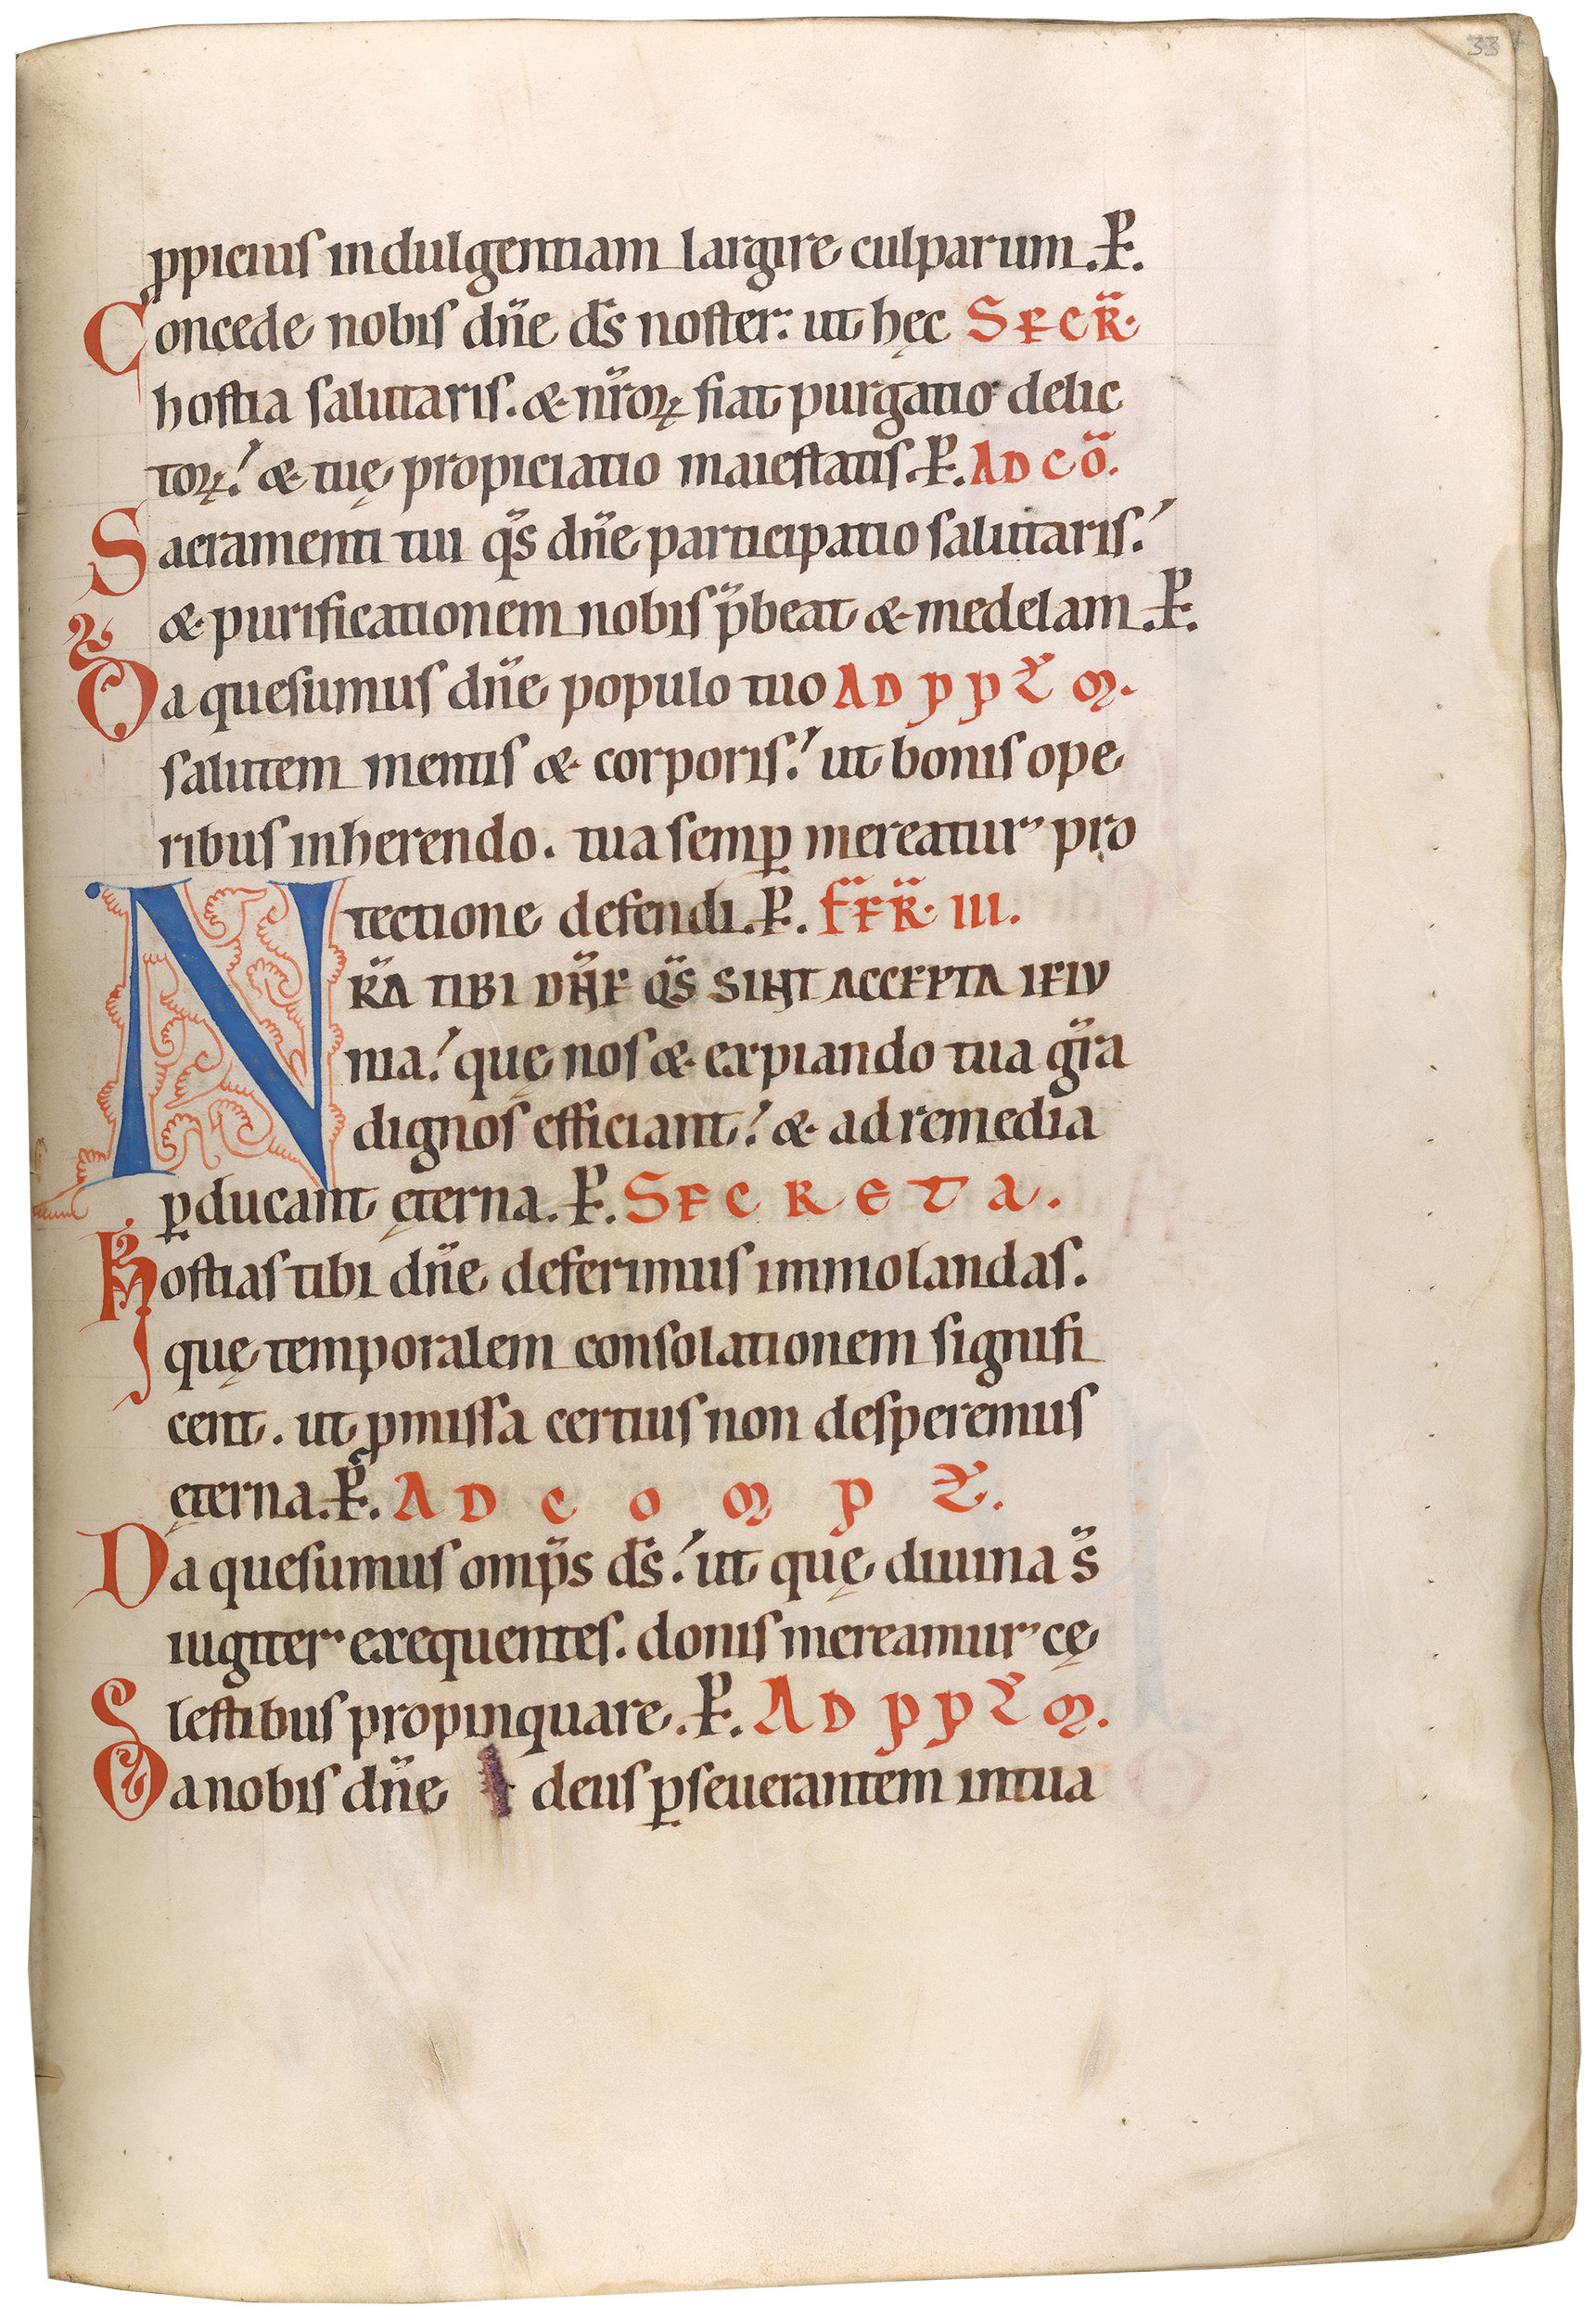 33
ꝓpicius indulgentiam largire culparum. P̵.
Concede nobis dn̄e ds̄ noster: ut hęc SECR̄.
hostia salutaris. & nr̄oꝝ fiat purgatio delic
toꝝ: & tuę propiciatio maiestatis. P̵. AD CŌ.
Sacramenti tui qs̄ dn̄e participatio salutaris:
& purificationem nobis p̄beat & medelam. P̵.
Da quesumus dn̄e populo tuo AD PP̄LM.
salutem mentis & corporis: ut bonis ope
ribus inherendo. tua semꝑ mereatur pro
tectione defendi. P̵. FER̄. III.
NR̄A TIBI DN̄E QS̄ SINT ACCEPTA IEIU
nia: quę nos & expiando tua gr̄a
dignos efficiant: & ad remedia
ꝑducant ęterna. P̵. SECRETA.
Hostias tibi dn̄e deferimus immolandas.
quę temporalem consolationem signifi
cent. ut ꝓmissa certius non desperemus
ęterna. P̵. AD COMPL̄.
Da quesumus omp̄s ds̄: ut quę diuina s̄
iugiter exequentes. donis mereamur cę
lestibus propinquare. P̵. AD PPL̄M.
Da nobis dn̄e deus ꝑseuerantem in tua